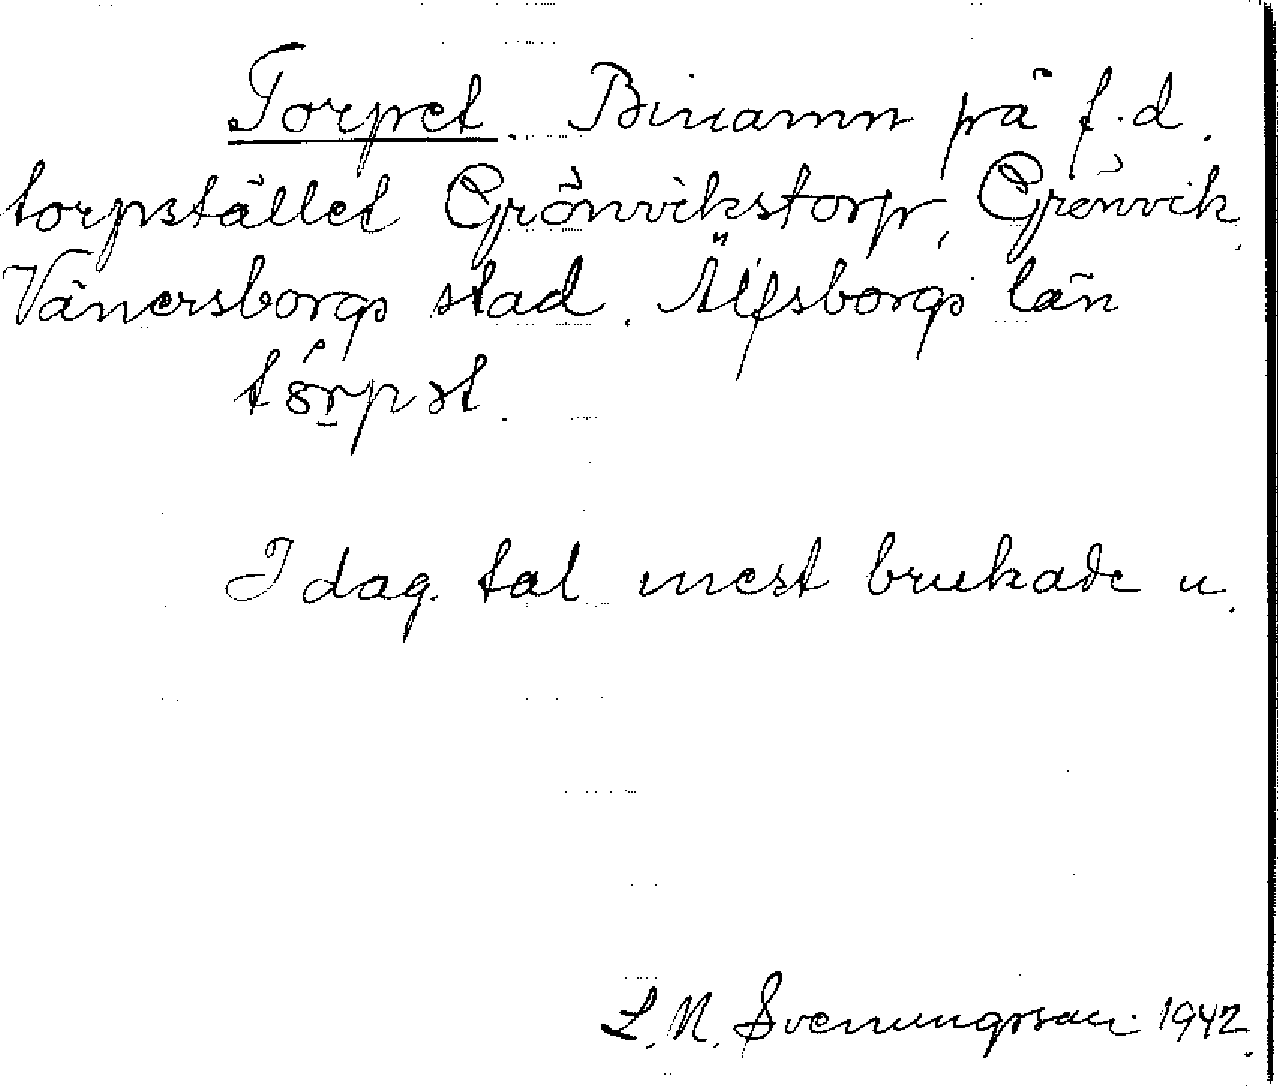 Torpet. Binamn på f.d.
torpstället Grönvikstorp, Grönvik,
Vänersborgs stad. Älfsborgs län
tórpət.
I dag. tal mest brukade n.
L. N. Svenungsson 1942.